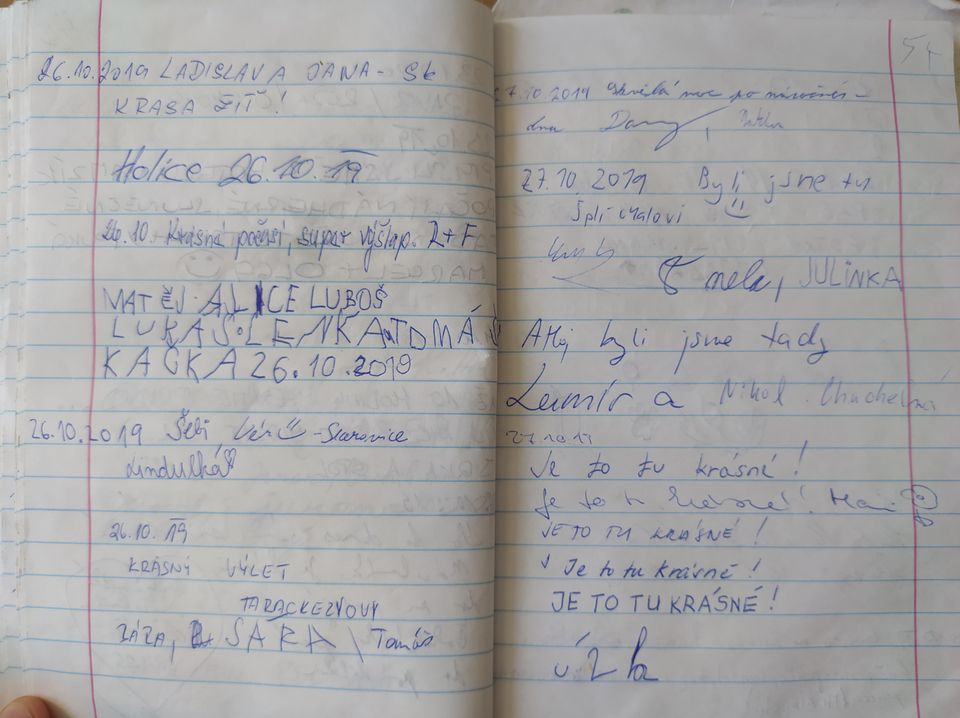 26.10.2019 LADISLAV A JANA - SK
KRASA ŽÍŤ!
Holice 26.10.19
26.10. Krásné počasí, super výšlap. Z+F
MATĚJ · ALICE LUBOŠ
LUKAS · LENKA TOMÁŠ
KAČKA 26.10.2019
26.10.2019 Šebi, - Starovice
Lindulká
26.10.19
KRÁSNÝ VÝLET
ZÁZA, SÁRA Tomáš
54
27.10.2019 Skvělá noc po
27.10.2019 Byli jsme tu
Šplíchalovi
nela, JULINKA
Ahoj byli jsme tady
Lumír a Nikol
27.10.19
Je to tu krásné!
Je to tu krásné!
JE TO TU KRÁSNÉ!
Je to tu krásné!
JE TO TU KRÁSNÉ!